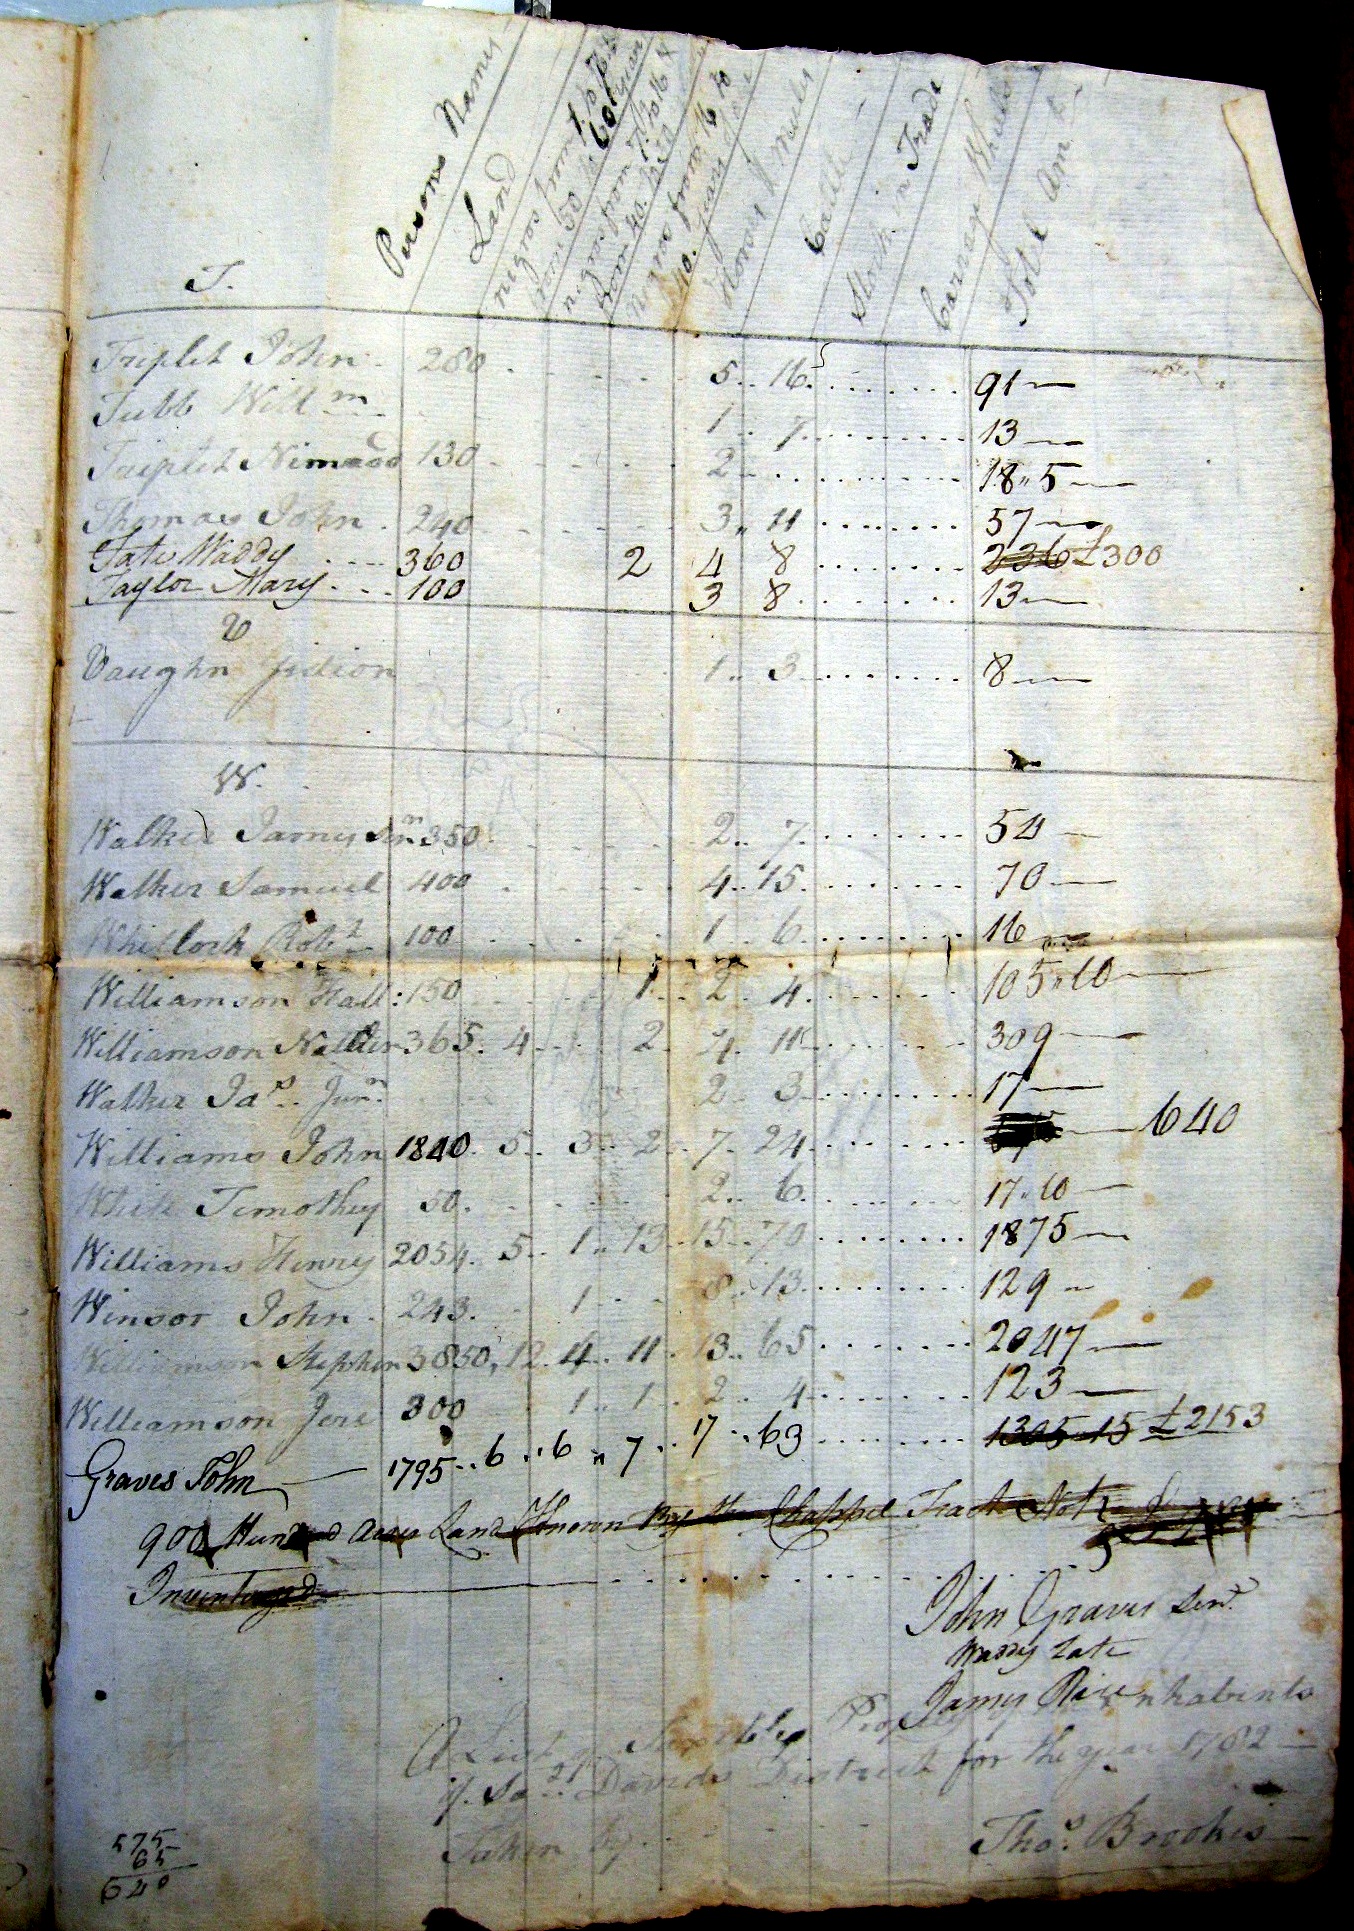 T.
Persons Names
Land
negros from 1 to 7 & from 50 to 60 years
negros from 7 to 16 & from 40 to 50
negros from 16 to 40 years
Horses & Mules
Cattle
Stock in Trade
Carriage Wheeles
Total Amt
Triplet John 280 5 16 91
Tubb Willm 1 7 13
Triplet Nimrod 130 2 18 5
Thomas John 240 3 11 57
Tate Waddy 360 2 4 8 236 £300
Taylor Mary 100 3 8 13
V
Vaughn Gidion 1 3 8
W.
Walker James Senr 350 2 7 54
Walker Samuel 400 4 15 70
Whitlock Robt 100 1 6 16
Williamson Hall: 150 1 2 4 105 10
Williamson 365 4 2 4 11 309
Walker Jas. Junr 2 3 17
Williams John 1840 5 3 2 7 24 640
White Timothey 50 2 6 17 10
Williams Henry 2054 5 1 13 15 70 1875
Winsor John 243 1 8 13 129
Williamson Stephen 3850 12 4 11 13 65 2047
Williamson Jere 300 1 1 2 4 123
Graves John 1795 6 6 7 17 63 1305 15 £2153
900 Hundred acres Land Known By the Chappel Tract Not
Inventoryed
John Graves Senr
Waddy Tate
James Rice
A List of Taxable Property Inhabints
of Sd. Davids District for the year 1782
Taken by
Thos. Brookes
575
65
640